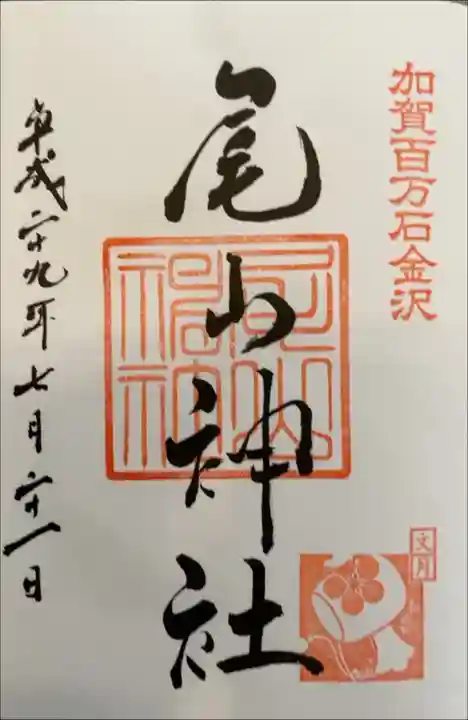 加賀百万石金沢
文月
尾山神社
尾山神社
平成二十九年七月二十一日